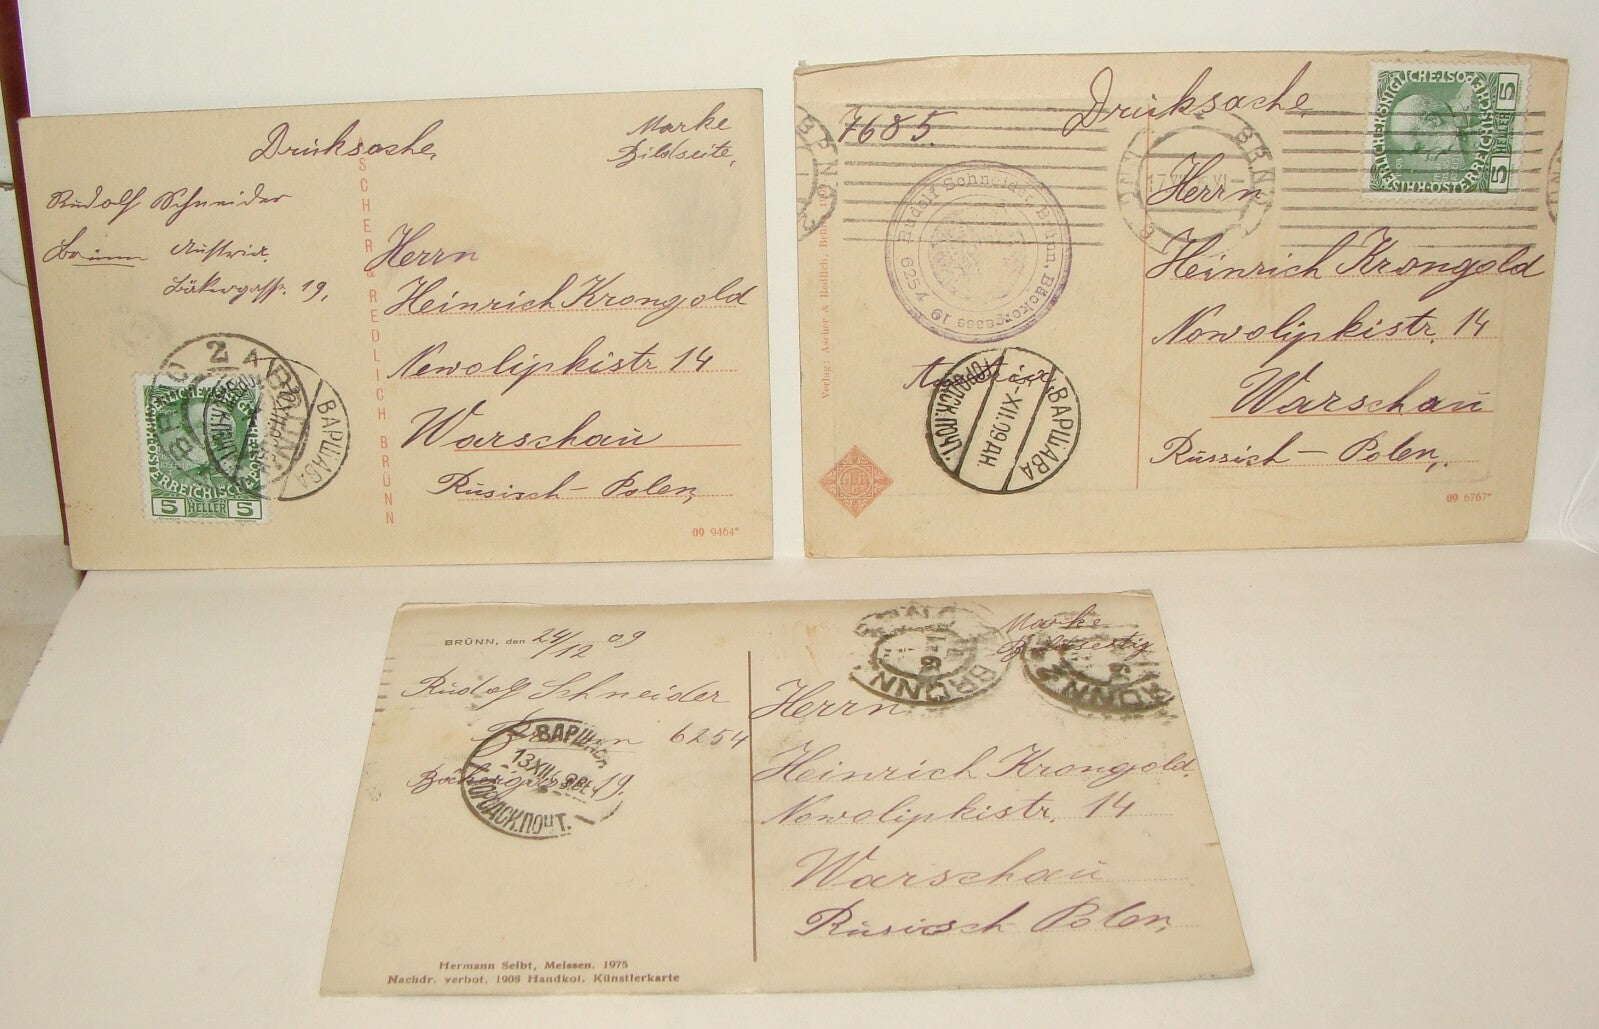 Drucksache,
Marke
Bildseite,
Rudolf Schneider
Brünn Austria.
Bäkergasse. 19,
Herrn
Heinrich Krongold
Nowolipkistr 14
Warschau
Rusisch - Polen,
SCHER & REDLICH BRÜNN
BRNO 2 BRÜNN
ВАРШАВА
5 HELLER 5
09 9464*
7685.
Drucksache
KAISERLICHE KÖNIGLICHE ÖSTERREICHISCHE POST
5 HELLER 5
Rudolf Schneider, Brünn, Bäckergasse 19
6254
Verlag: Ascher & Redlich, Brünn
Herrn
Heinrich Krongold
Nowolipkistr. 14
Warschau
Russisch - Polen,
Austria
ВАРШАВА
-XII.09
ГОРОДСК.ПОЧТ.
09 6767*
BRÜNN, den 24/12 09
Marke
Bildseitig
Rudolf Schneider
Brünn 6254
Bäckergasse 19.
BRÜNN
BRÜNN
ВАРШ
13 XII
ГОРОДСК.ПОЧТ.
Herrn
Heinrich Krongold.
Nowolipkistr. 14
Warschau
Rusisch Polen,
Hermann Seibt, Meissen. 1975
Nachdr. verbot. 1908 Handkol. Künstlerkarte